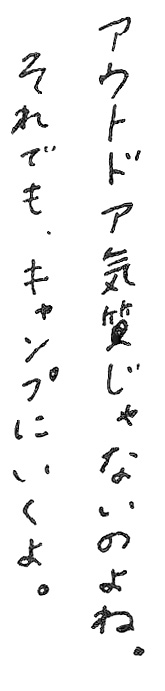 アウトドア気質じゃないのよね.
それでも、キャンプにいくよ。